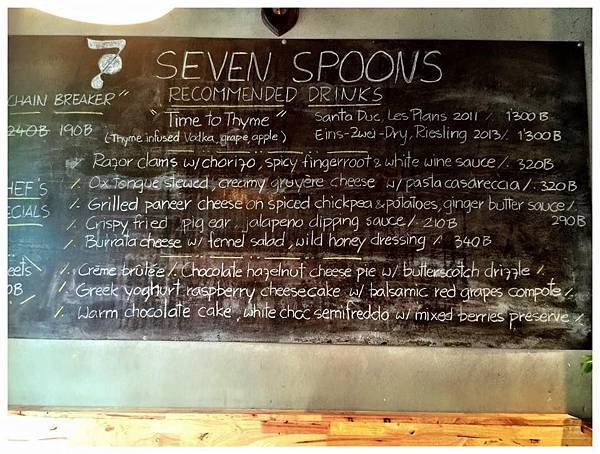 7
SEVEN SPOONS
RECOMMENDED DRINKS
CHAIN BREAKER"
240B 190B
"Time to Thyme"
(Thyme infused Vodka, grape, apple)
Santa Duc, Les Plans 2011 /. 1'300B
Eins-Zwei-Dry, Riesling 2013/. 1'300B
HEF'S
PECIALS
Razor clams w/chorizo, spicy fingerroot & white wine sauce/. 320B
Ox tongue stewed, creamy gruyère cheese w/pasta casareccia/. 320B
Grilled paneer cheese on spiced chickpea & potatoes, ginger butter sauce/. 290B
Crispy fried pig ear, jalapeno dipping sauce/. 210B
Burrata cheese w/ fennel salad, wild honey dressing /. 340B
eets
0B
Crème brûlée /. Chocolate hazelnut cheese pie w/ butterscotch drizzle /.
Greek yoghurt raspberry cheesecake w/ balsamic red grapes compote /.
Warm chocolate cake, white choc semifreddo w/ mixed berries preserve /.